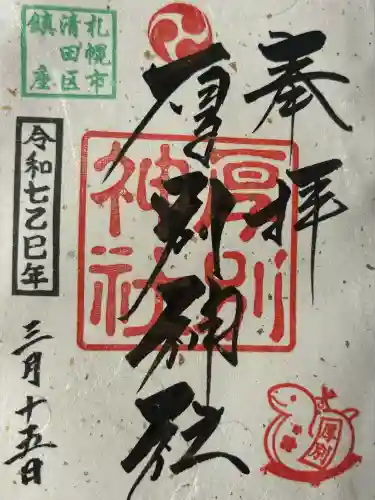 奉拝
厚別神社
厚別
神社
札幌市
清田区
鎮座
令和七乙巳年
三月十五日
厚別